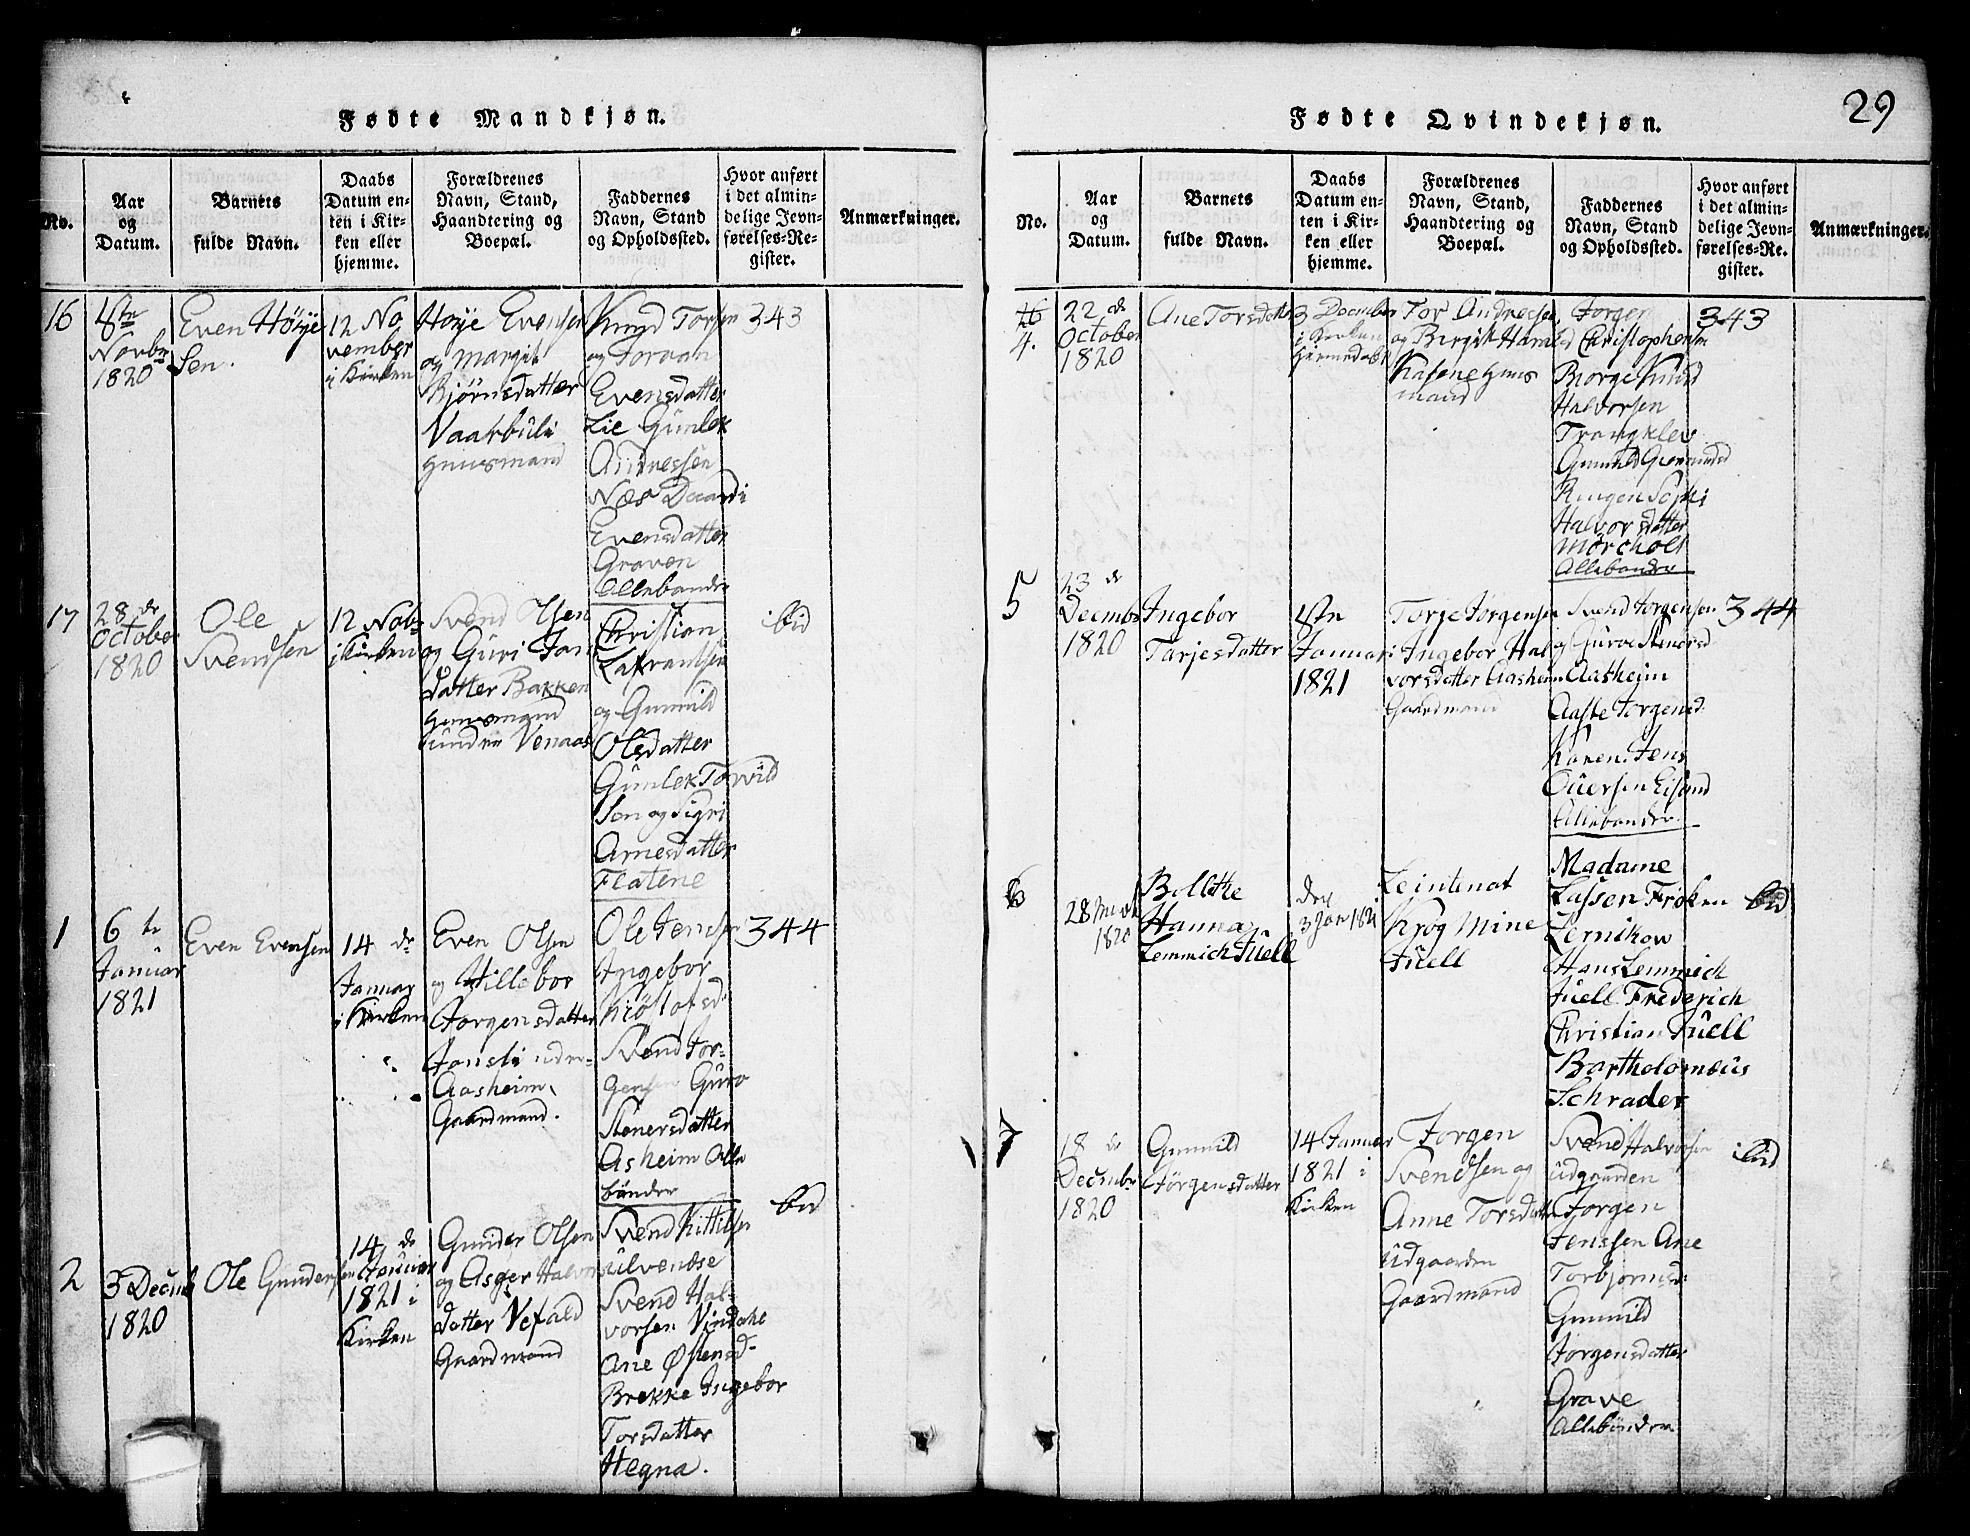 29
Fødte Mandkjøn.
No.
Aar
og
Datum.
Barnets
fulde Navn.
Daabs
Datum en-
ten i Kir-
ken eller
hjemme.
Forældrenes
Navn, Stand,
Haandtering og
Boepæl.
Faddernes
Navn, Stand
og Opholdssted.
Hvor anført
i det almin-
delige Jevn-
førelses-Re-
gister.
Anmærkninger.
16
4de
Novbr
1820
Even Höÿe
Sen.
12 No
vember
i Kirken
Hoÿe Evensen
og Margit
Bjørnsdatter
Vaatbuli
Huusmand
Knud Torsen
og Jorann
Evensdatter
Lie Gunlek
Andressen
Næs Daardi
Evensdatter
Graven
Allebønder
343
17
28 de
October
1820
Ole
Svendsen
12 Novb
i Kirken
Svend Olsen
og Guri Jans
datter Bakken
Huusmand
under Venaas
Christian
Lafrantsen
og Gunnild
Olsdatter
Gunlek Torvild
sen og Sigri
Arnesdatter
Flatene
ibid
1
6 te
Januar
1821
Even Evensen
14 de
Januar
i Kirken
Even Olsen
og Hillebor
Jorgensdatter
Jonsli under
Aasheim
Gaardmand.
Ole Jensen
Ingebor
Kiöstofsd:
Svend Jor-
gensen Guro
Stenersdatter
Asheim Alle
bønder
344
2
3 Decmb
1820
Ole Gundersen
14 de
Januar
1821 i
Kirken
Gunder Olsen
og Asger Halvors
datter Vefald
Gaardmand
Svend Kittilsen
ulvendse
Svend Hal-
vorsen Vindahl
Ane Østensd-
Brekke Ingebor
Torsdatter
Hegna.
ibid
Fødte Qvindekjøn.
No.
Aar
og
Datum.
Barnets
fulde Navn.
Daabs
Datum en-
ten i Kir-
ken eller
hjemme.
Forældrenes
Navn, Stand,
Haandtering og
Boepæl.
Faddernes
Navn, Stand
og Opholdssted.
Hvor anført
i det almin-
delige Jevn-
førelses-Re-
gister.
Anmærkninger.
16
4.
22 de
October
1820
Ane Torsdatter
3 December
i Kirken
Hiemedøbt
Tor Andresen
og Birgit Ham
Kasene Huus
mand
Jorgen
Christophersen
Biorge Knud
Halvorsen
Trangklev
Gunnild Gudmundsd
Ringen Sophi
Halvorsdatter
Mørcholt
Allebønder
343
5
23 de
Decembr
1820
Ingebor
Tarjesdatter
4de
Januari
1821
Torge Jørgensen
Ingebor Hal
vorsdatter Aasheim
Gaardmand
Svend Jorgensen
og Gurve Stenersd
Aasheim
Aaste Jorgensd.
Karen. Jens
Ouersen Eisand
Allebønder
344
6
28
1820
Bolethe
Hanna
Lemmich Juell
den
3 Jan 1821
Leintenat
Krog Mine
Juell
Madame
Lassen Frøken
Lernikow
Hans Lemmich
Juell Frederich
Christian Juell
Bartholomæus
Schrader
ibid
7
18 de
Decmbr
1820
Gunnild
Jörgensdatter
14 Januar
1821 i
Kirken
Jorgen
Svendsen og
Anne Torsdatter
Udgaarden
Gaardmand
Svend Halvorsen
Udgaarden
Jorgen
Jenssen Ane
Torbjørnsd:
Gunnild
Jorgensdatter
Grave
Allebönder
ibid